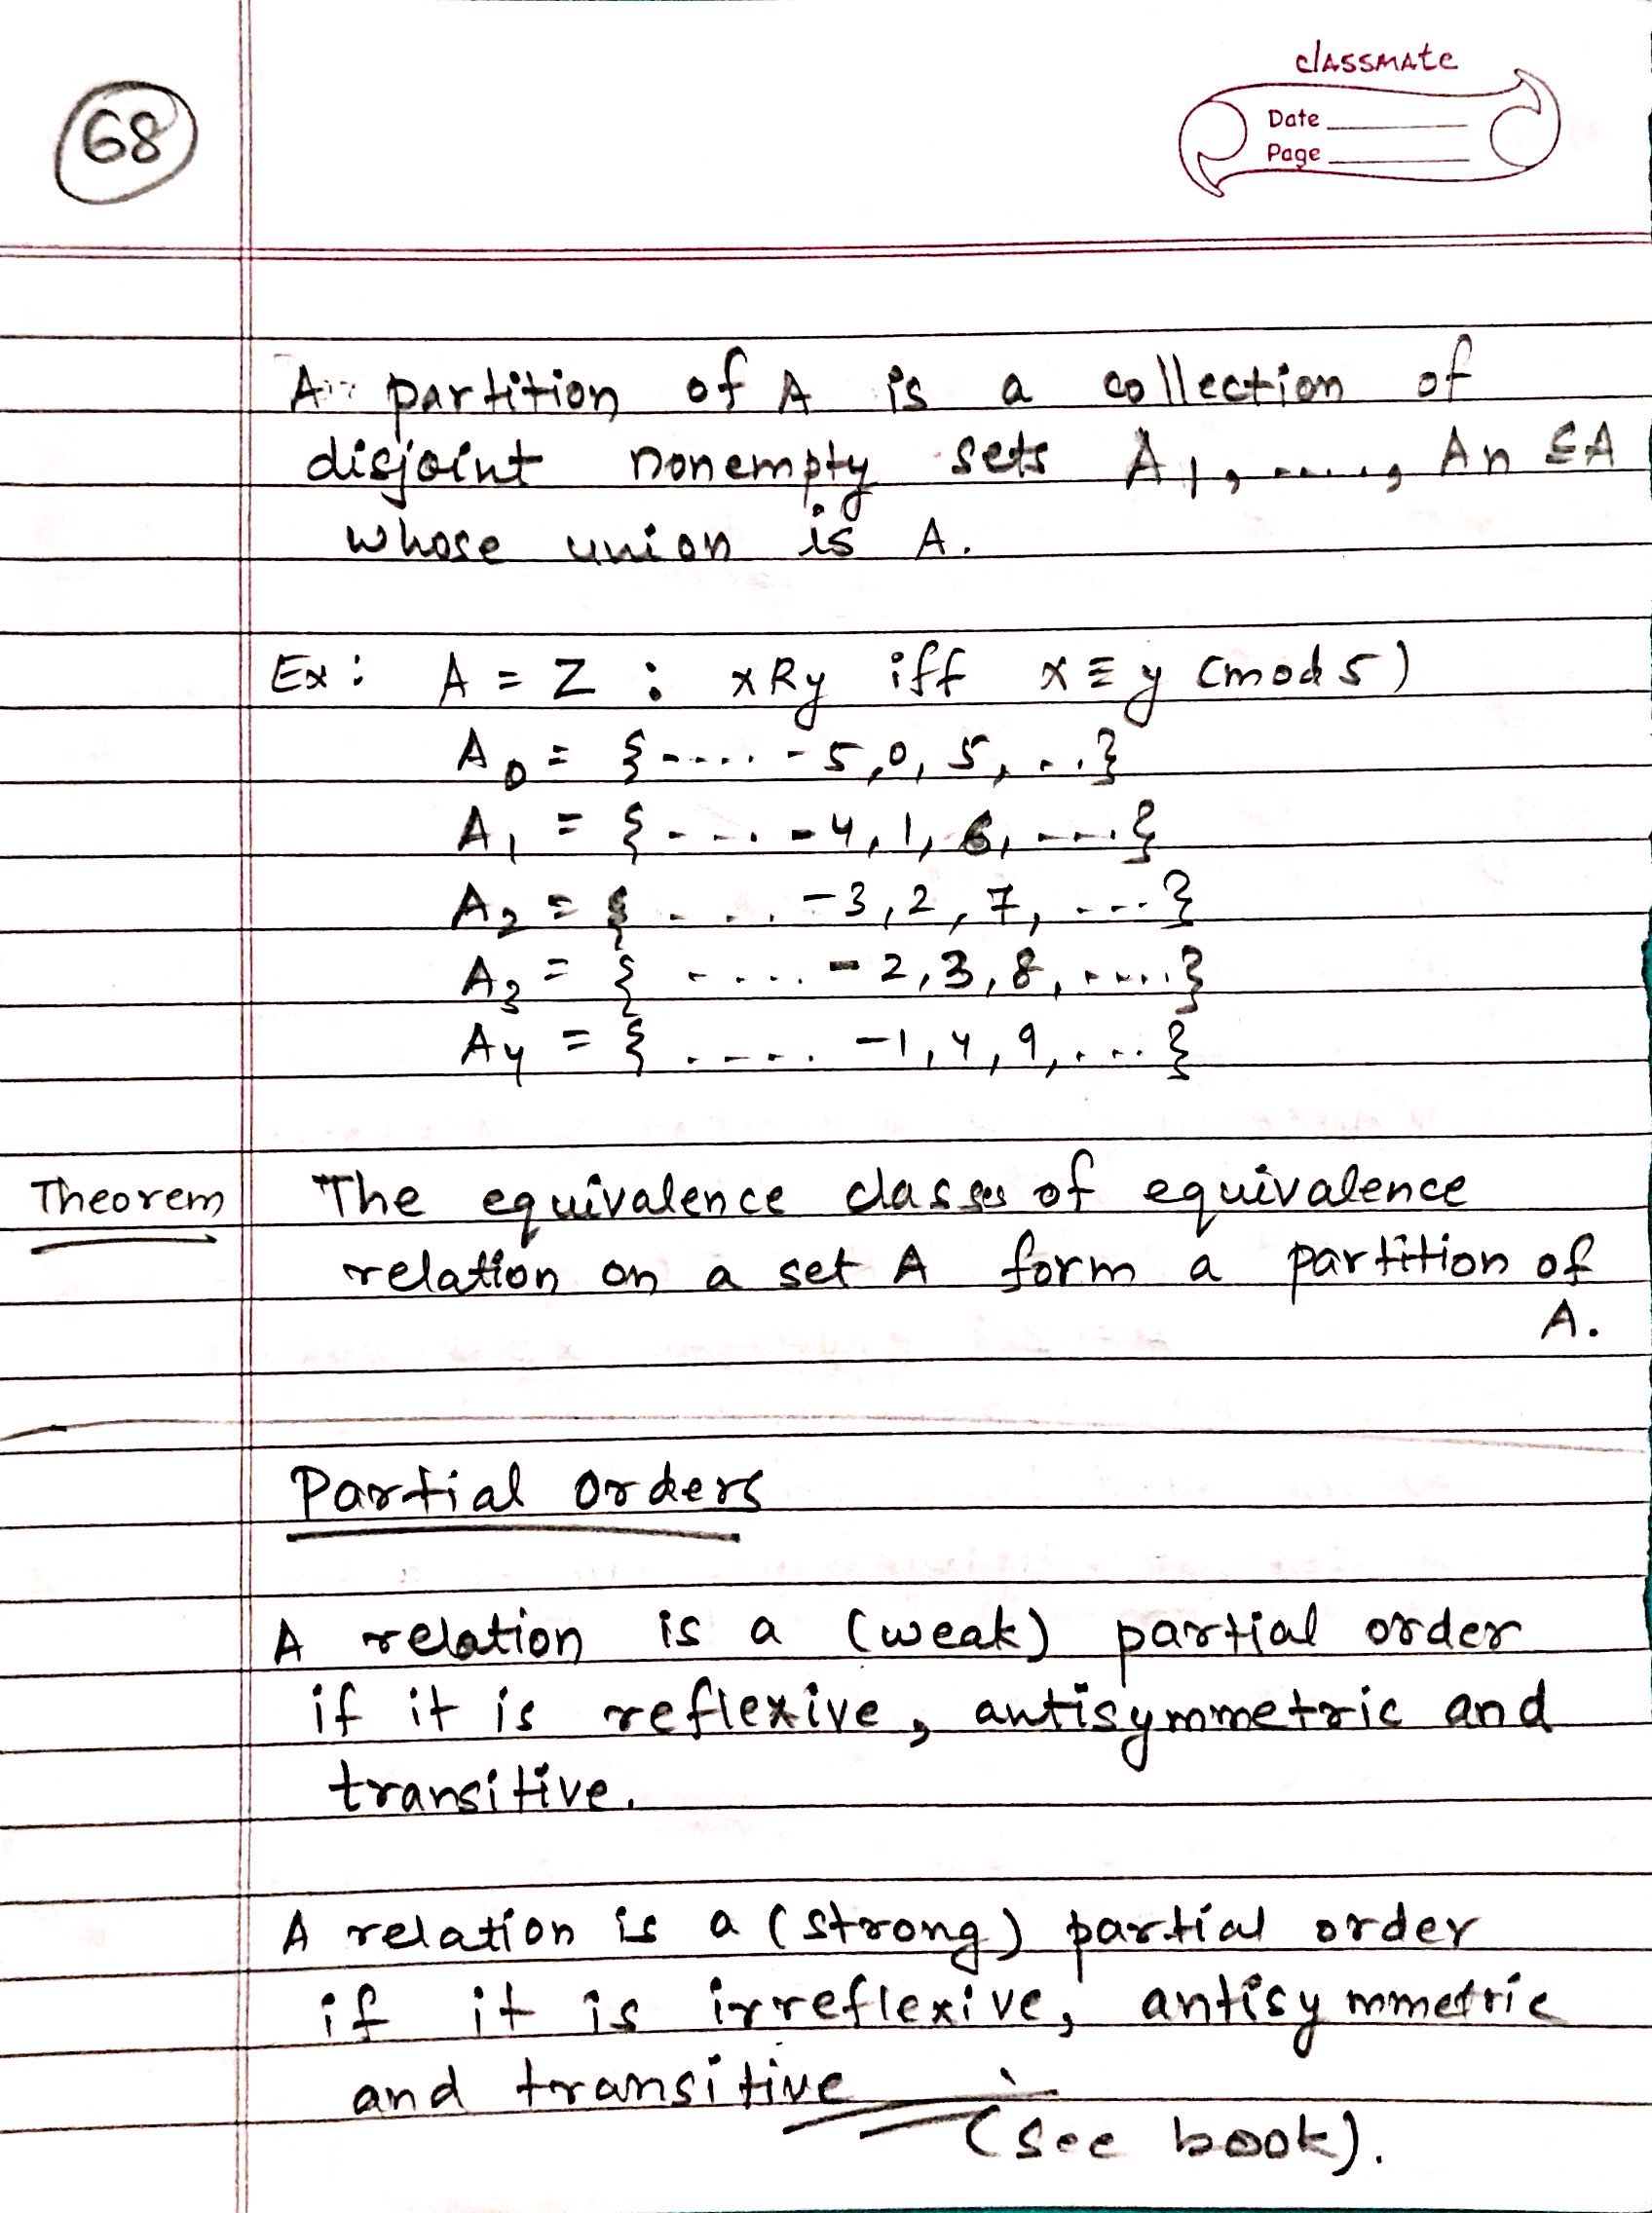 68
classmate
Date
Page
A partition of A is a collection of
disjoint nonempty sets A1, ....., An ⊆ A
whose union is A.
Ex : A = Z : xRy iff x ≡ y (mod 5)
A0 = {..... -5,0, 5, ...}
A1 = {..... -4, 1, 6, ....}
A2 = {.... -3, 2, 7, ....}
A3 = {..... -2, 3, 8, .....}
A4 = {..... -1, 4, 9, ....}
Theorem The equivalence classes of equivalence
relation on a set A form a partition of
A.
Partial Orders
A relation is a (weak) partial order
if it is reflexive, antisymmetric and
transitive.
A relation is a (strong) partial order
if it is irreflexive, antisymmetric
and transitive
(see book).